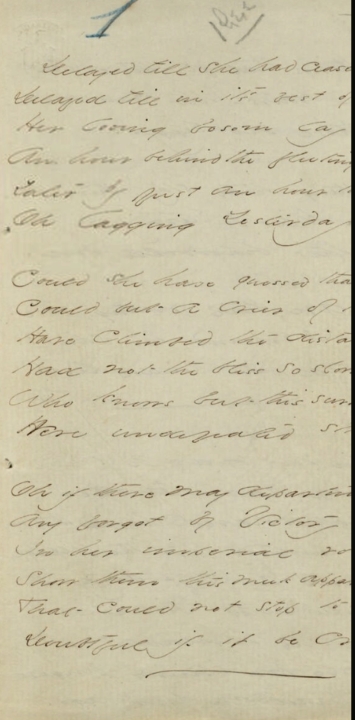 1
Delayed till she had ceas
Delayed till in its vest of
Her loving bosom lay
An hour behind the fleeting
Later by just an hour
Oh lagging Yesterday
Could she have guessed tha
Could but a crier of
Have climbed the dista
Had not the bliss so slow
Who knows but this surr
Were undefeated
Oh if there may departin
Any forgot by Victory
In her imperial ro
Show them this meek appar
That could not stop to
Doubtful if it be Cr